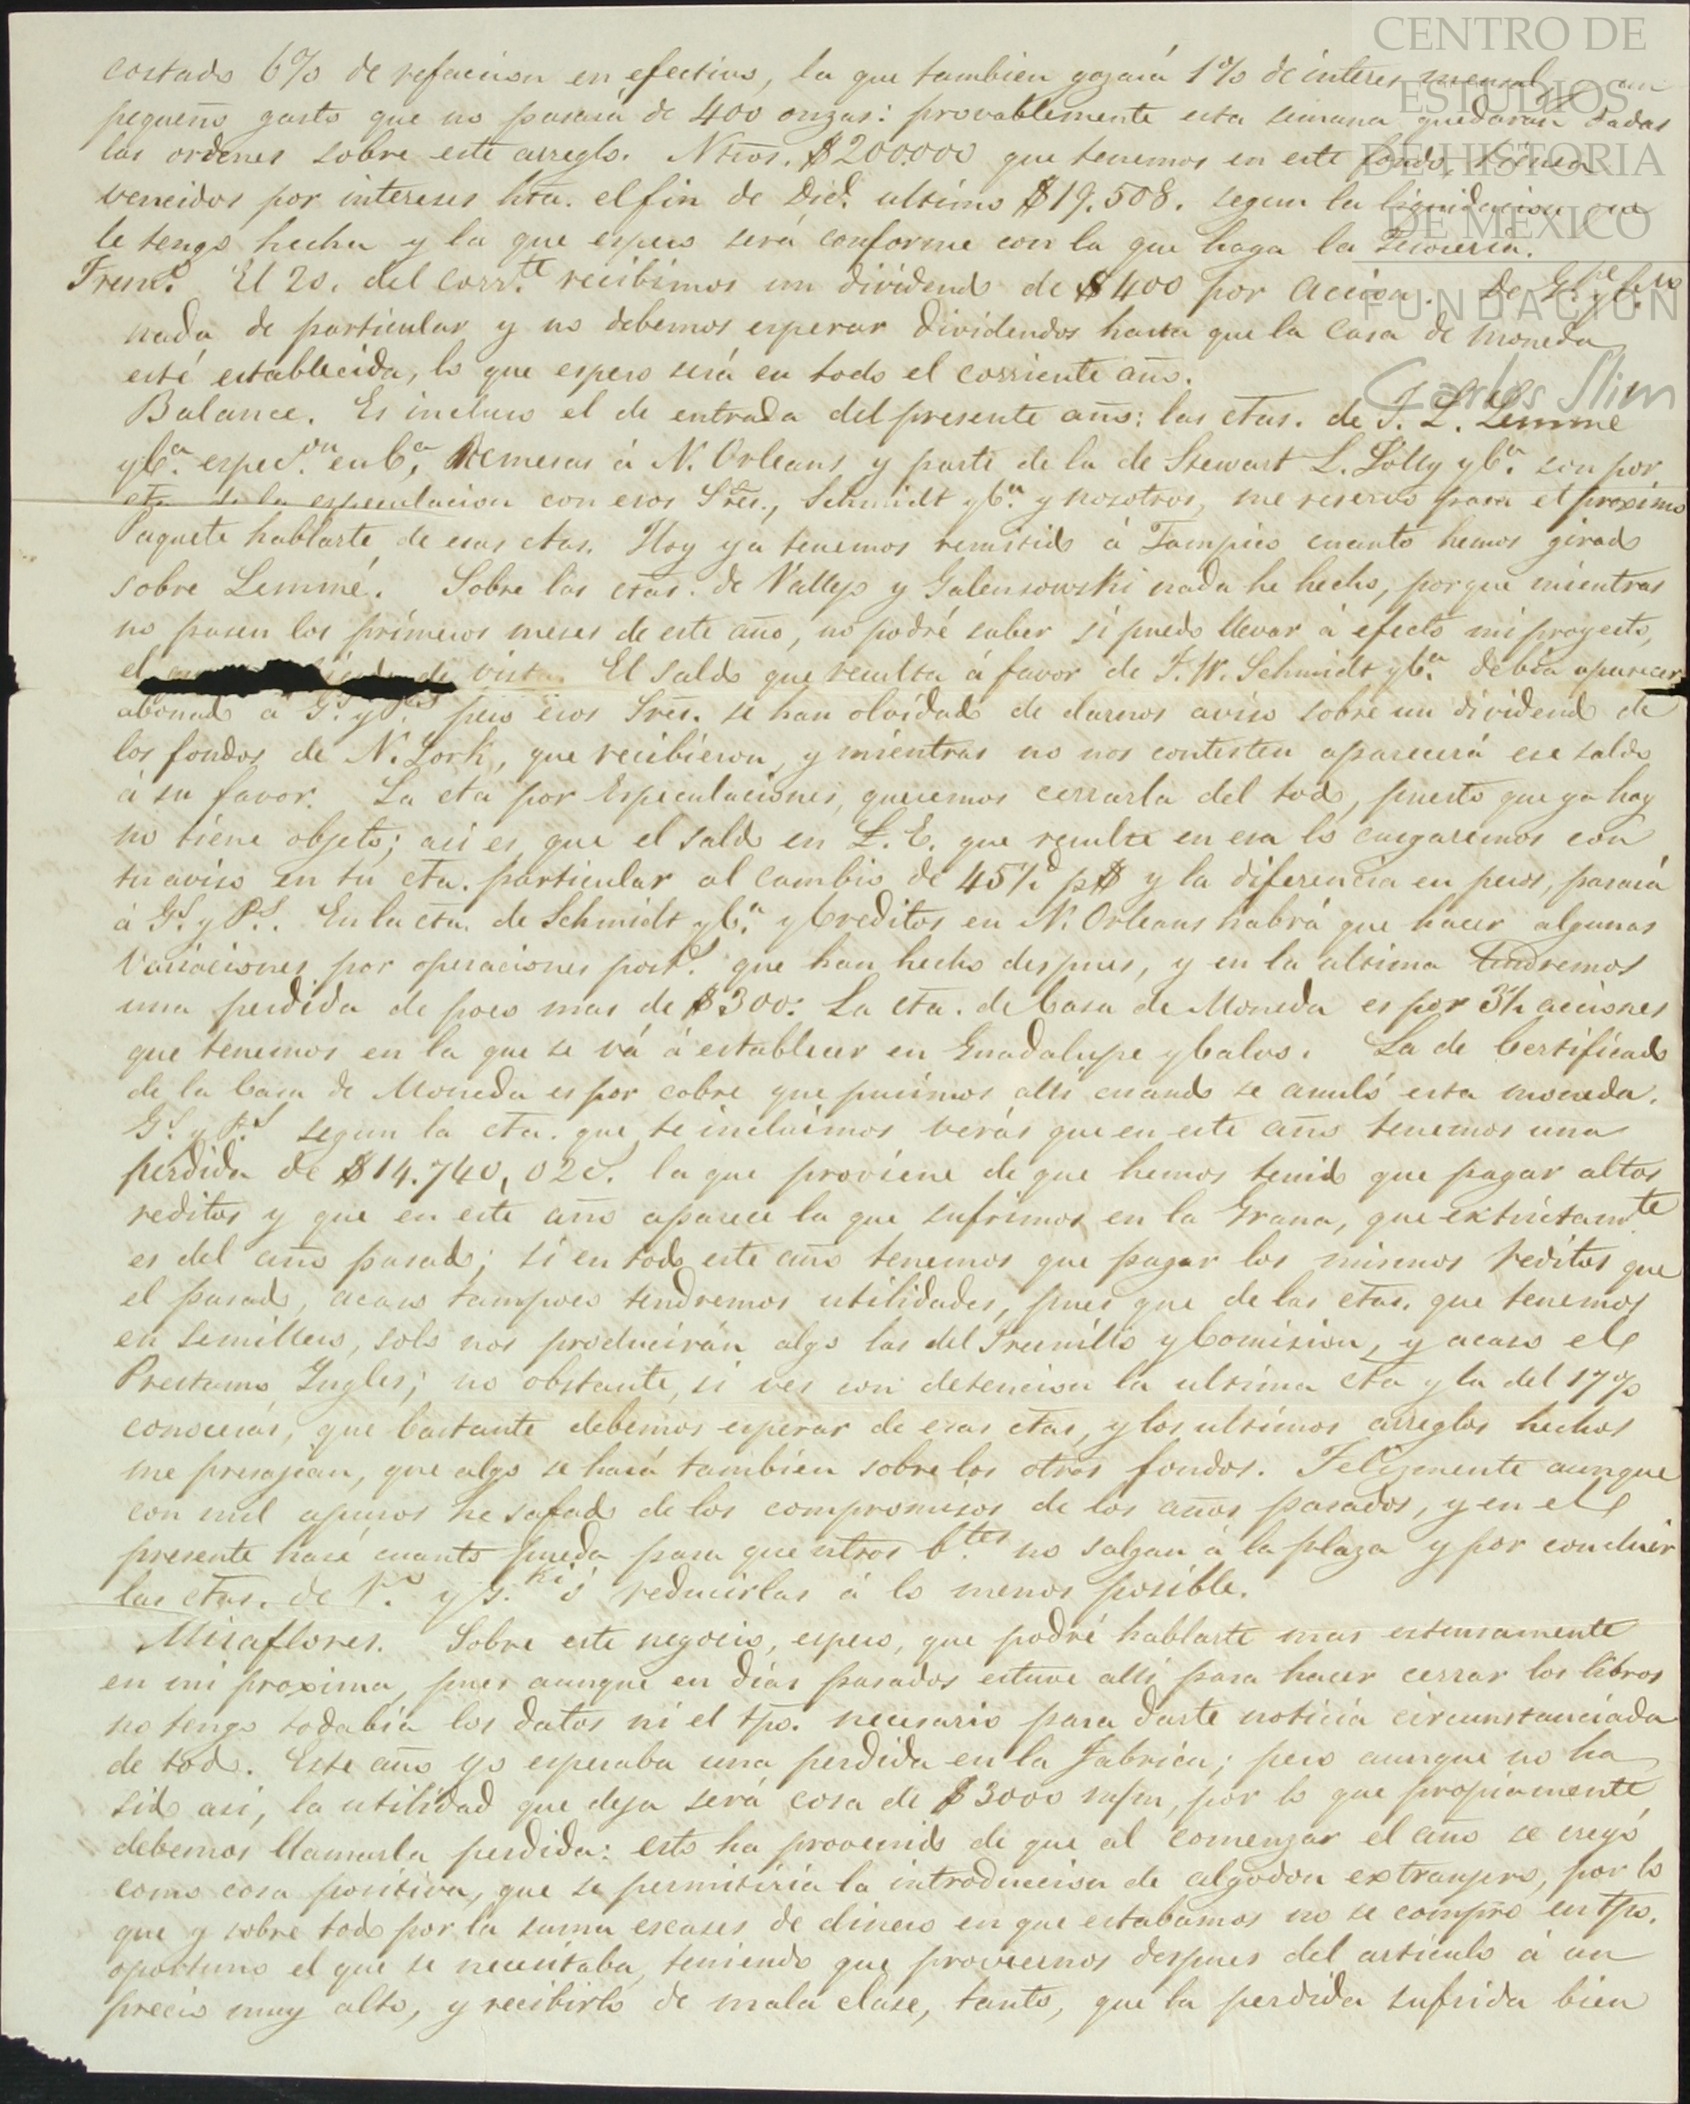 costado 6% de refaccion en efectivo, la que tambien gozará 1% de interes mensual y un
pequeño gasto que no pasará de 400 onzas: provablemente esta semana quedarán dadas
las ordenes sobre este arreglo. Ntros. $200.000 que tenemos en este fondo, tienen
vencidos por intereses hta. el fin de Dic.e ultimo $19.508. segun la liquidacion que
le tengo hecha y la que espero será conforme con la que haga la Tesoreria.
Fresn.o El 20. del corr.te recibimos un dividendo de $400 por accion. De G.pe y C.vo
nada de particular y no debemos esperar dividendos hasta que la Casa de moneda
esté establecida, lo que espero será en todo el corriente año.
Balance. Es incluso el de entrada del presente año: las ctas. de J. L. Lemmé
y C.a espec.on en C.a, Remesas á N. Orleans y parte de la de Stewart L. Jolly y C.a son por
cta de la especulacion con esos Sres., Schmidt y C.a y nosotros, me reservo para el proximo
Paquete hablarte de esas ctas. Hoy ya tenemos remitido á Tampico cuanto hemos girado
sobre Lemmé. Sobre las ctas. de Vallejo y Galensowski nada he hecho, porque mientras
no pasen los primeros meses de este año, no podré saber si puedo llevar á efecto mi proyecto,
el de vista. El saldo que resulta á favor de J. W. Schmidt y C.a debia aparecer
abonado a G.s y P.s pero esos Sres. se han olvidado de darnos aviso sobre un dividendo de
los fondos de N. York, que recibieron, y mientras no nos contesten aparecerá ese saldo
á su favor. La cta por Especulaciones, queremos cerrarla del todo, puesto que ya hoy
no tiene objeto; asi es, que el saldo en L. E. que resulte en esa lo cargaremos con
tu aviso en tu cta. particular al cambio de 45½d p$ y la diferencia en pesos, pasará
á G.s y P.s. En la cta. de Schmidt y C.a y Creditos en N. Orleans habrá que hacer algunas
variaciones por operaciones post.s que han hecho despues, y en la ultima tendremos
una perdida de poco mas de $300. La cta. de Casa de Moneda es por 3½ acciones
que tenemos en la que se vá á establecer en Guadalupe y Calvo. La de Certificado
de la Casa de Moneda es por cobre que pusimos alli cuando se anuló esta moneda.
G.s y P.s segun la cta. que te incluimos verás que en este año tenemos una
perdida de $14.740,02c.s la que proviene de que hemos tenido que pagar altos
reditos y que en este año aparece la que sufrimos en la Grana, que extrictam.te
es del año pasado; si en todo este año tenemos que pagar los mismos reditos que
el pasado, acaso tampoco tendremos utilidades, pues que de las ctas. que tenemos
en semillero, solo nos producirán algo las del Fresnillo y Comision, y acaso el
Prestamo Ingles; no obstante, si ves con detencion la ultima cta y la del 17%
conocerás, que bastante debemos esperar de esas ctas, y los ultimos arreglos hechos
me presajean, que algo se hará tambien sobre los otros fondos. Felizmente aunque
con mil apuros he safado de los compromisos de los años pasados, y en el
presente haré cuanto pueda para que ntros C.tes no salgan á la plaza y por concluir
las ctas. de V.o y G.ki ó reducirlas á lo menos posible.
Miraflores. Sobre este negocio, espero, que podré hablarte mas estensamente
en mi proxima, pues aunque en dias pasados estuve alli para hacer cerrar los libros
no tengo todabia los datos ni el tpo. necesario para darte noticia circunstanciada
de todo. Este año yo esperaba una perdida en la Fabrica; pero aunque no ha
sido asi, la utilidad que deja será cosa de $3000 , por lo que propiamente
debemos llamarla perdida: esto ha provenido de que al comenzar el año se creyó
como cosa positiva, que se permitiria la introduccion de algodon extranjero, por lo
que y sobre todo por la suma escases de dinero en que estabamos no se compró en tpo.
oportuno el que se necesitaba, teniendo que proveernos despues del articulo á un
precio muy alto, y recibirlo de mala clase, tanto, que la perdida sufrida bien
CENTRO DE
ESTUDIOS
DE HISTORIA
DE MÉXICO
FUNDACIÓN
Carlos Slim